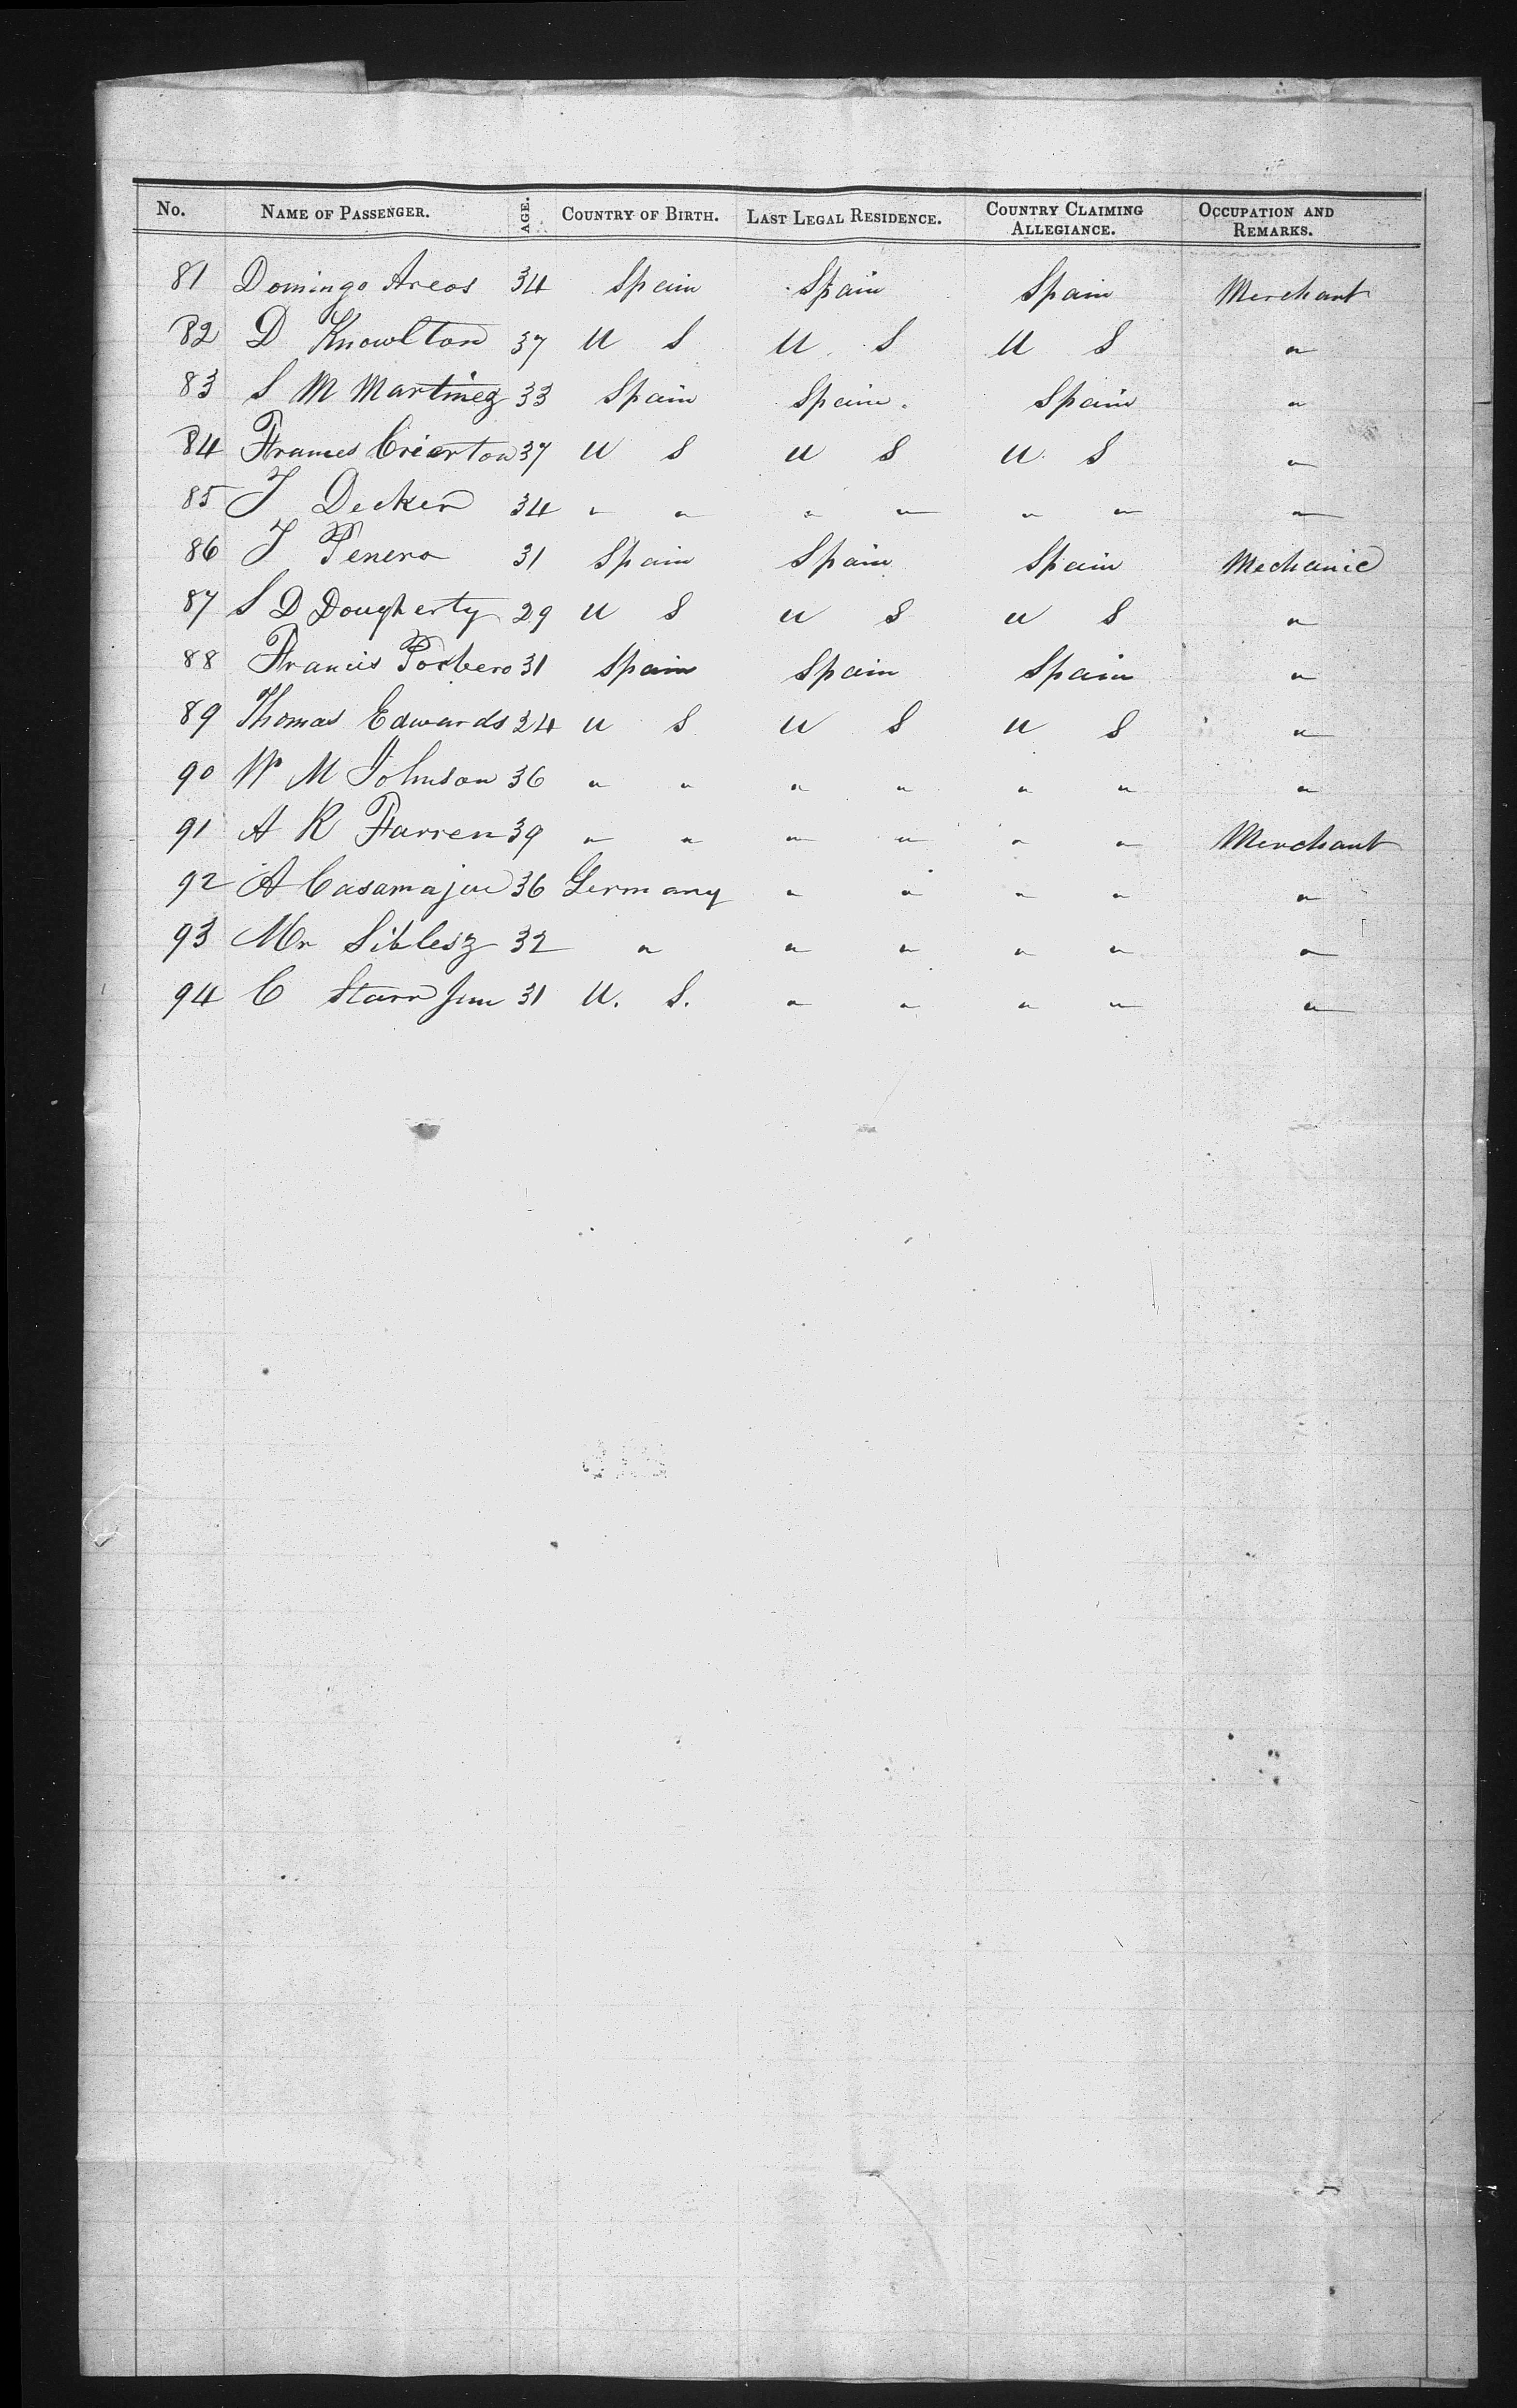 No. NAME OF PASSENGER. AGE. COUNTRY OF BIRTH. LAST LEGAL RESIDENCE. COUNTRY CLAIMING ALLEGIANCE. OCCUPATION AND REMARKS.
81 Domingo Areos 34 Spain Spain Spain Merchant
82 D Knowlton 37 U S U S U S "
83 S M Martinez 33 Spain Spain. Spain "
84 Frames 37 U S U S U S "
85 J Decker 34 " " " " " " "
86 J Penero 31 Spain Spain Spain Mechanic
87 S D Dougherty 29 U S U S U S "
88 Francis 31 Spain Spain Spain "
89 Thomas Edwards 34 U S U S U S "
90 W M Johnson 36 " " " " " " "
91 A K Farren 39 " " " " " " Merchant
92 A 36 Germany " " " " "
93 Mr 32 " " " " " "
94 C Starr Jun 31 U. S. " " " " "